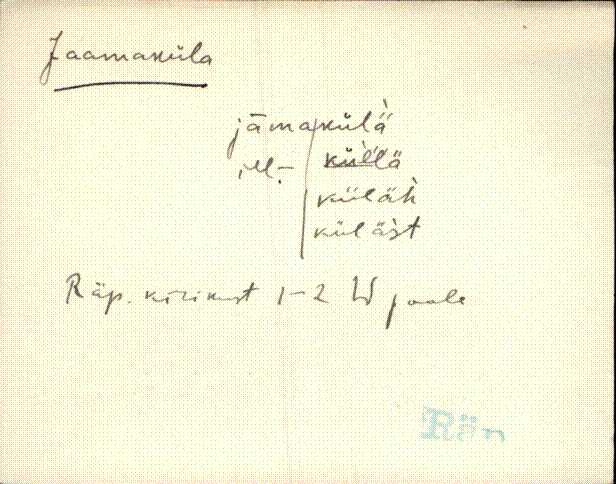 Jaamaküla
jāma|külä̀
küllä
küläh̀
külä̀st
Räp. kirikust 1-2 W poole
Rän